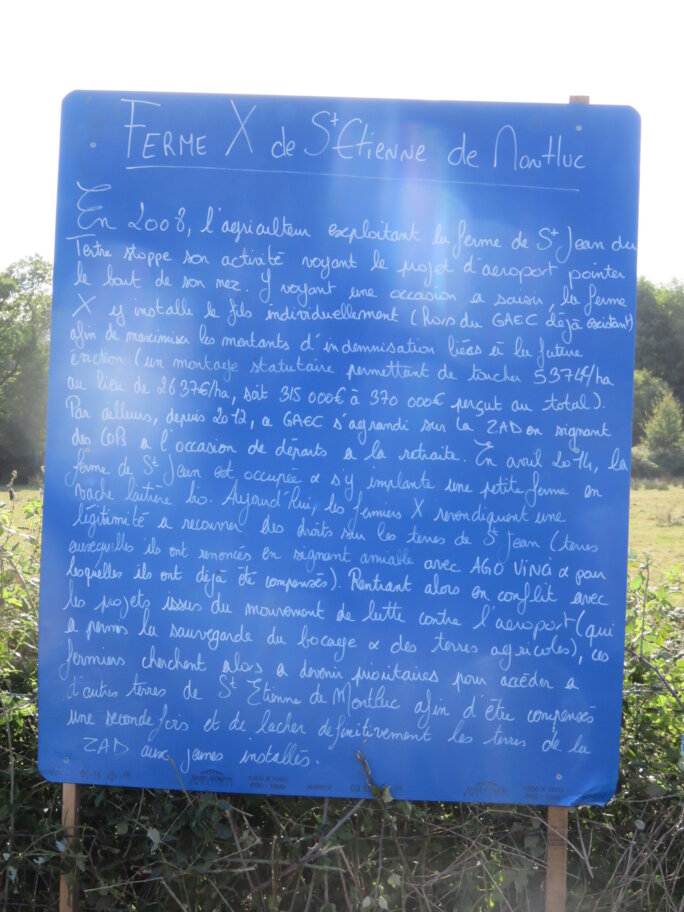 FERME X de St Etienne de Montluc
En 2008, l'agriculteur exploitant la ferme de St Jean du
Tertre stoppe son activité voyant le projet d'aeroport pointer
le bout de son nez. Y voyant une occasion a saisir, la ferme
X y installe le fils individuellement (hors du GAEC déjà existant)
afin de maximiser les montants d'indemnisation liées à la future
éviction (un montage statutaire permettant de toucher 5374€/ha
au lieu de 2637€/ha, soit 315 000€ à 370 000€ perçut au total).
Par ailleurs, depuis 2012, a GAEC s'agrandi sur la ZAD en signant
des COPs a l'occasion de départs a la retraite. En avril 2014, la
ferme de St Jean est occupée & s'y implante une petite ferme en
vache laitière bio. Aujourd'hui, les fermiers X revendiquent une
légitimité a recouvrer des droits sur les terres de St Jean (terres
auxquelles ils ont renoncés en signant amiable avec AGO VINCI & pour
lesquelles ils ont déjà été compensés). Rentrant alors en conflit avec
les projets issus du mouvement de lutte contre l'aeroport (qui
a permis la sauvegarde du bocage & des terres agricoles), ces
fermiers cherchent alors a devenir prioritaires pour accéder a
d'autres terres de St Etienne de Montluc afin d'être compensés
une seconde fois et de lacher définitivement les terres de la
ZAD aux jeunes installés.